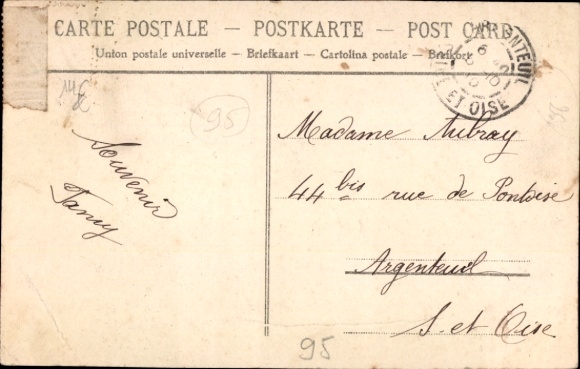 CARTE POSTALE — POSTKARTE — POST CARD
Union postale universelle — Briefkaart — Cartolina postale — Brefkort
ARGENTEUIL
ET OISE
95
Souvenir
Madame Aubray
44 bis rue de Pontoise
Argenteuil
S. et Oise
95